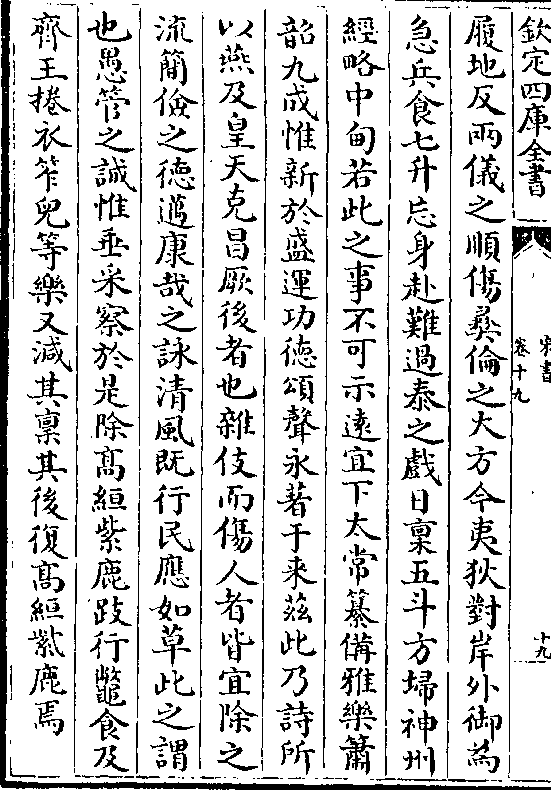 欽定四庫全書
宋書
卷十九
十九
履地反兩儀之順傷彛倫之大方今夷狄對岸外御為
急兵食七升忘身赴難過泰之戲日稟五斗方埽神州
經略中甸若此之事不可示遠宜下太常纂備雅樂簫
韶九成惟新於盛運功德頌聲永著于来兹此乃詩所
以燕及皇天克昌厥後者也雜伎而傷人者皆宜除之
流簡儉之徳邁康哉之詠清風既行民應如草此之謂
也愚管之誠惟垂采察於是除髙絙紫鹿跂行鼈食及
齊王捲衣笮兒等樂又減其稟其後復髙絙紫鹿焉